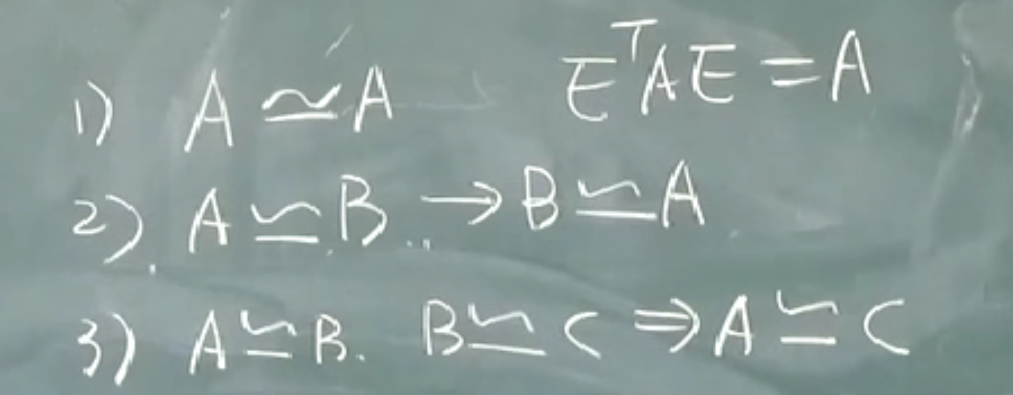 1) A ≃ A EᵀAE = A
2) A ≃ B → B ≃ A
3) A ≃ B. B ≃ C ⇒ A ≃ C